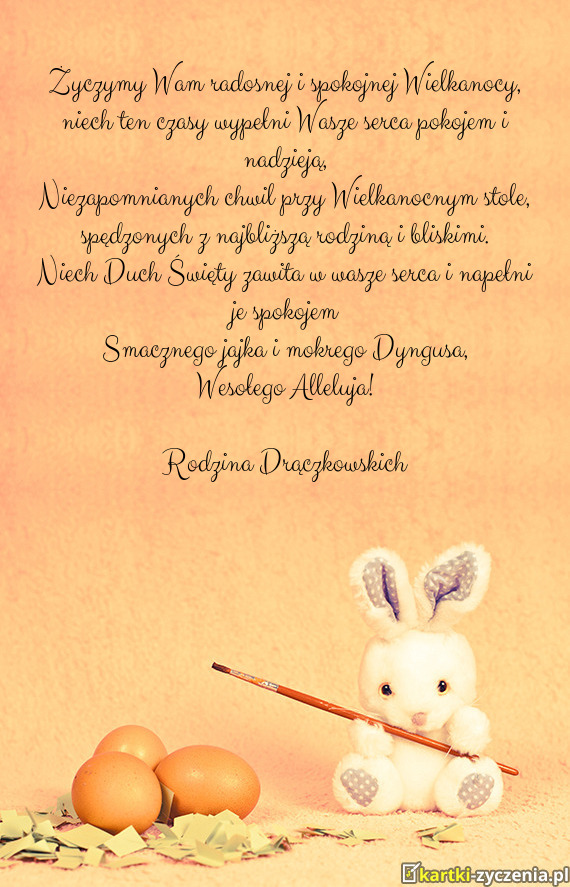 Życzymy Wam radosnej i spokojnej Wielkanocy,
niech ten czasy wypełni Wasze serca pokojem i
nadzieją,
Niezapomnianych chwil przy Wielkanocnym stole,
spędzonych z najbliższą rodziną i bliskimi.
Niech Duch Święty zawita w wasze serca i napełni
je spokojem
Smacznego jajka i mokrego Dyngusa,
Wesołego Alleluja!
Rodzina Drączkowskich
kartki-zyczenia.pl